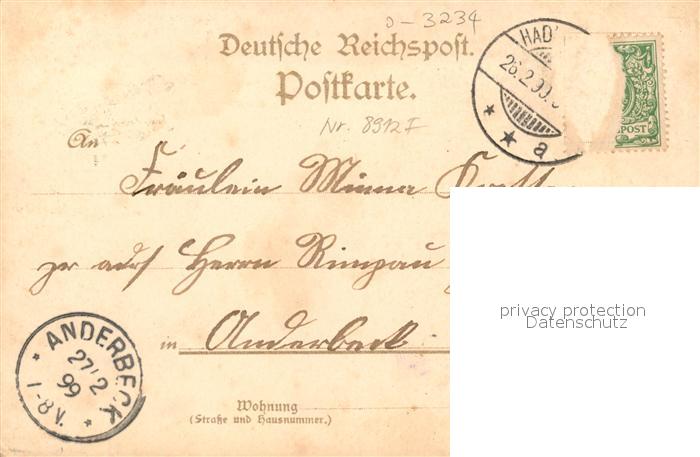 D-3234
Deutsche Reichspost.
Postkarte.
Nr. 8912 I
HAD
26.2.99
a
POST
An
Fräulein Minna
Herrn Rimpau
in Anderbeck
ANDERBECK
27/2
99
1-8V.
Wohnung
(Straße und Hausnummer.)
privacy protection
Datenschutz